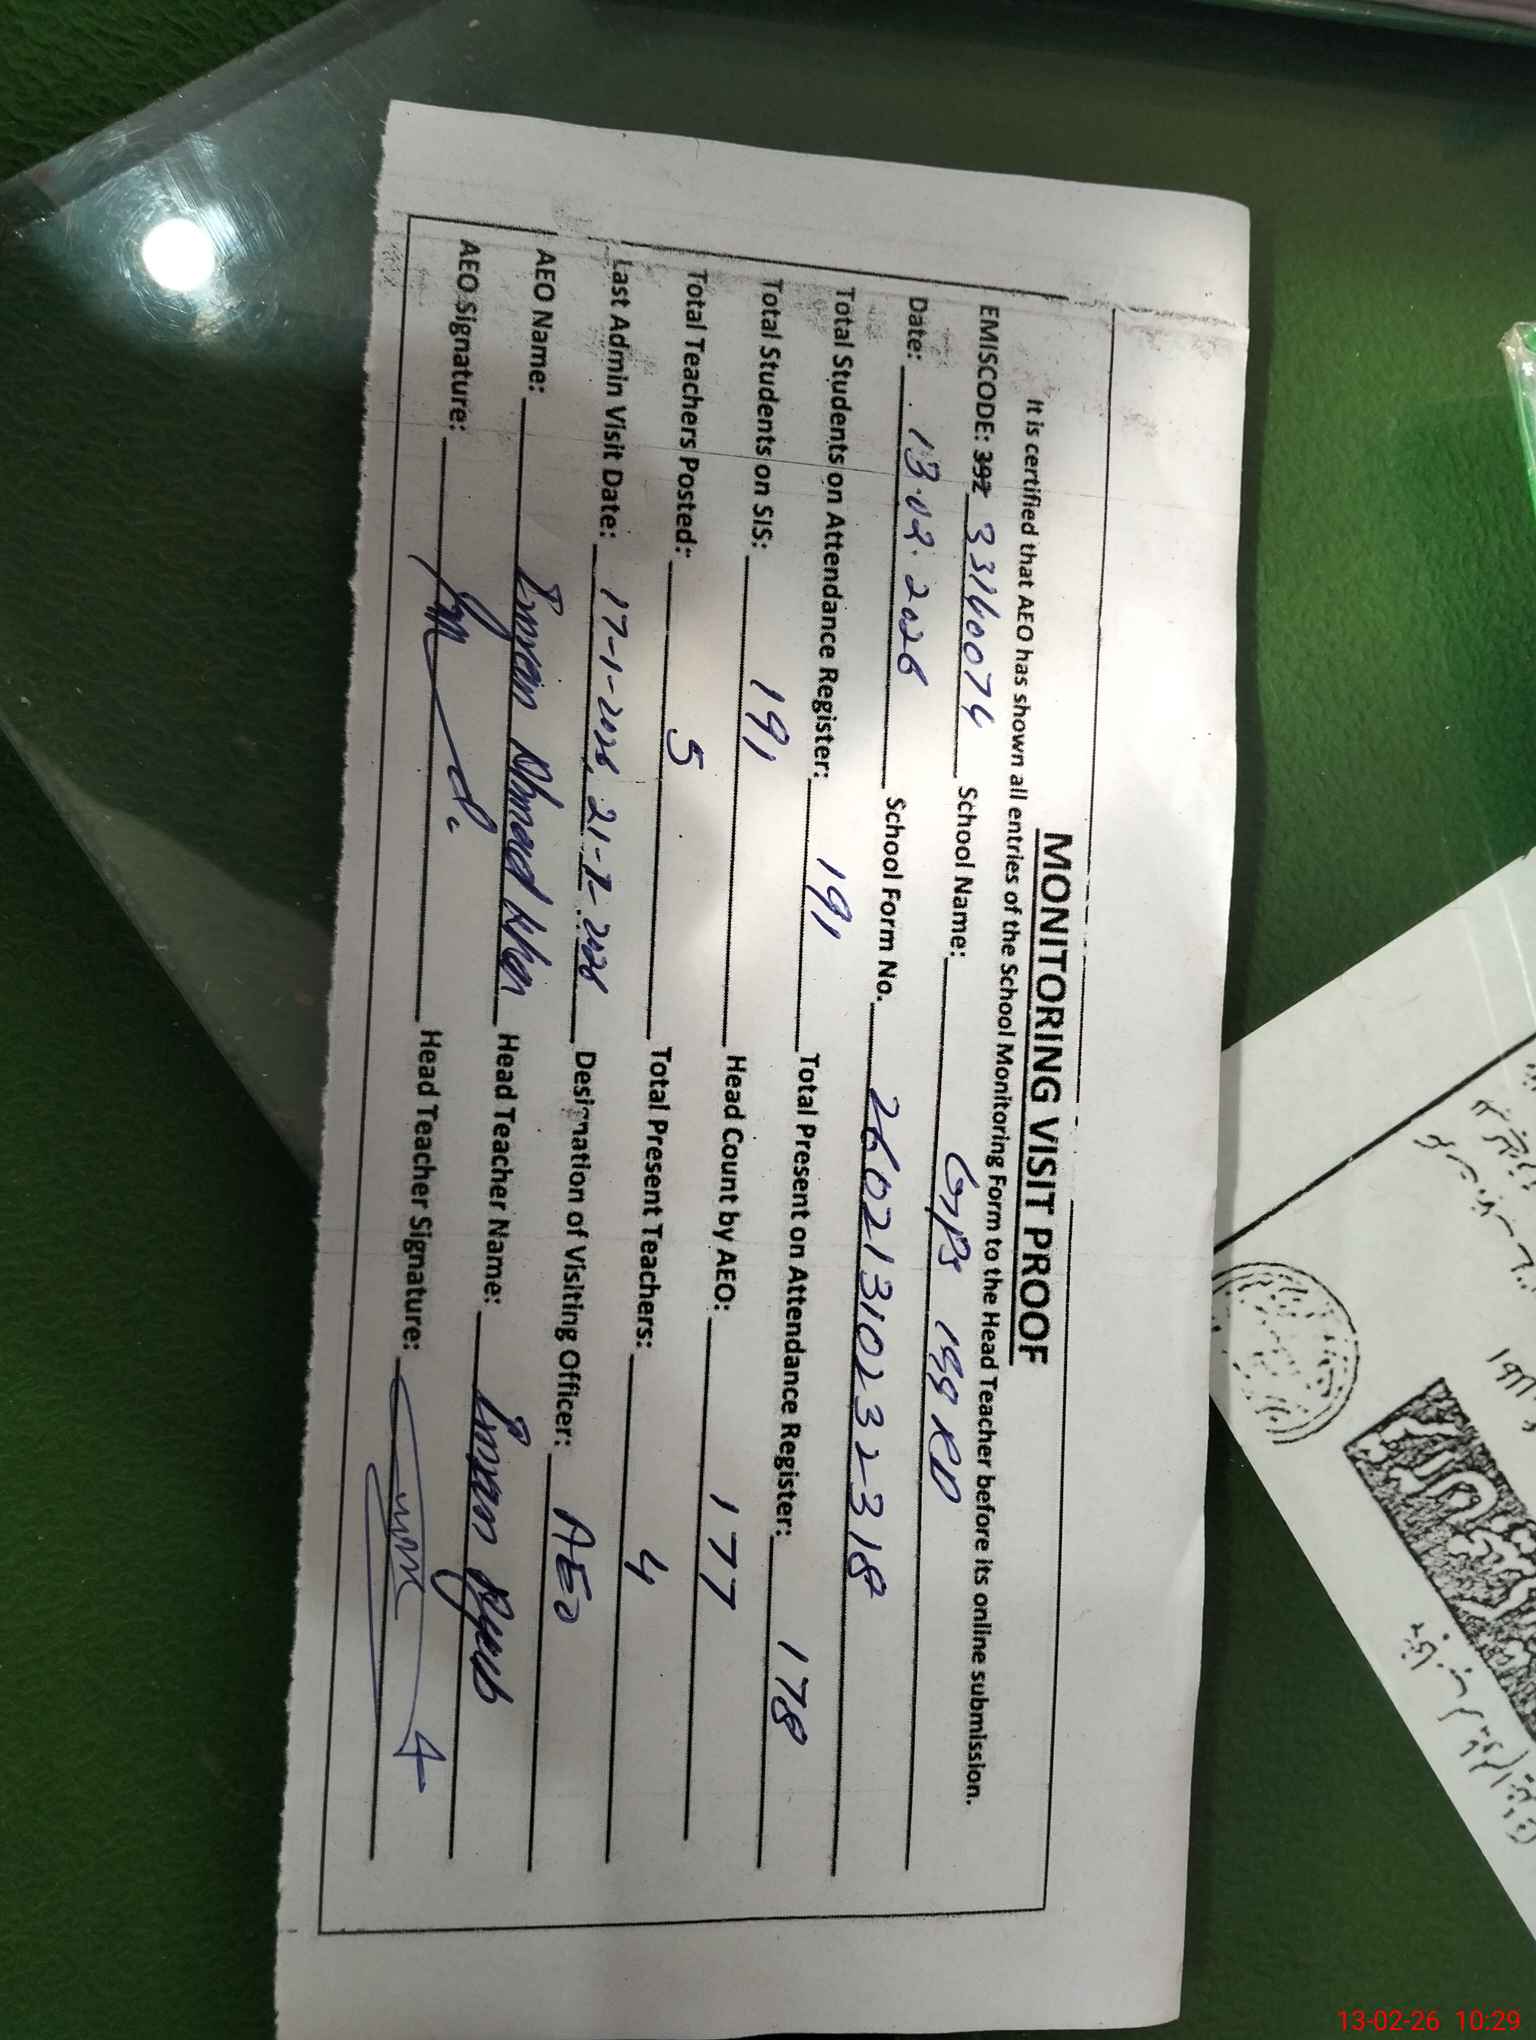 MONITORING VISIT PROOF
It is certified that AEO has shown all entries of the School Monitoring Form to the Head Teacher before its online submission.
EMISCODE: 392 33160074 School Name: GPS 199 RD
Date: 13.02.2026 School Form No. 2602131023 2318
Total Students on Attendance Register: 191 Total Present on Attendance Register: 178
Total Students on SIS: 191 Head Count by AEO: 177
Total Teachers Posted: 5 Total Present Teachers: 4
Last Admin Visit Date: 17-1-2026, 21-1-2026 Designation of Visiting Officer: AEO
AEO Name: Imran Ahmad Khan Head Teacher Name: Imran Ayub
AEO Signature: Head Teacher Signature:
13-02-26 10:29